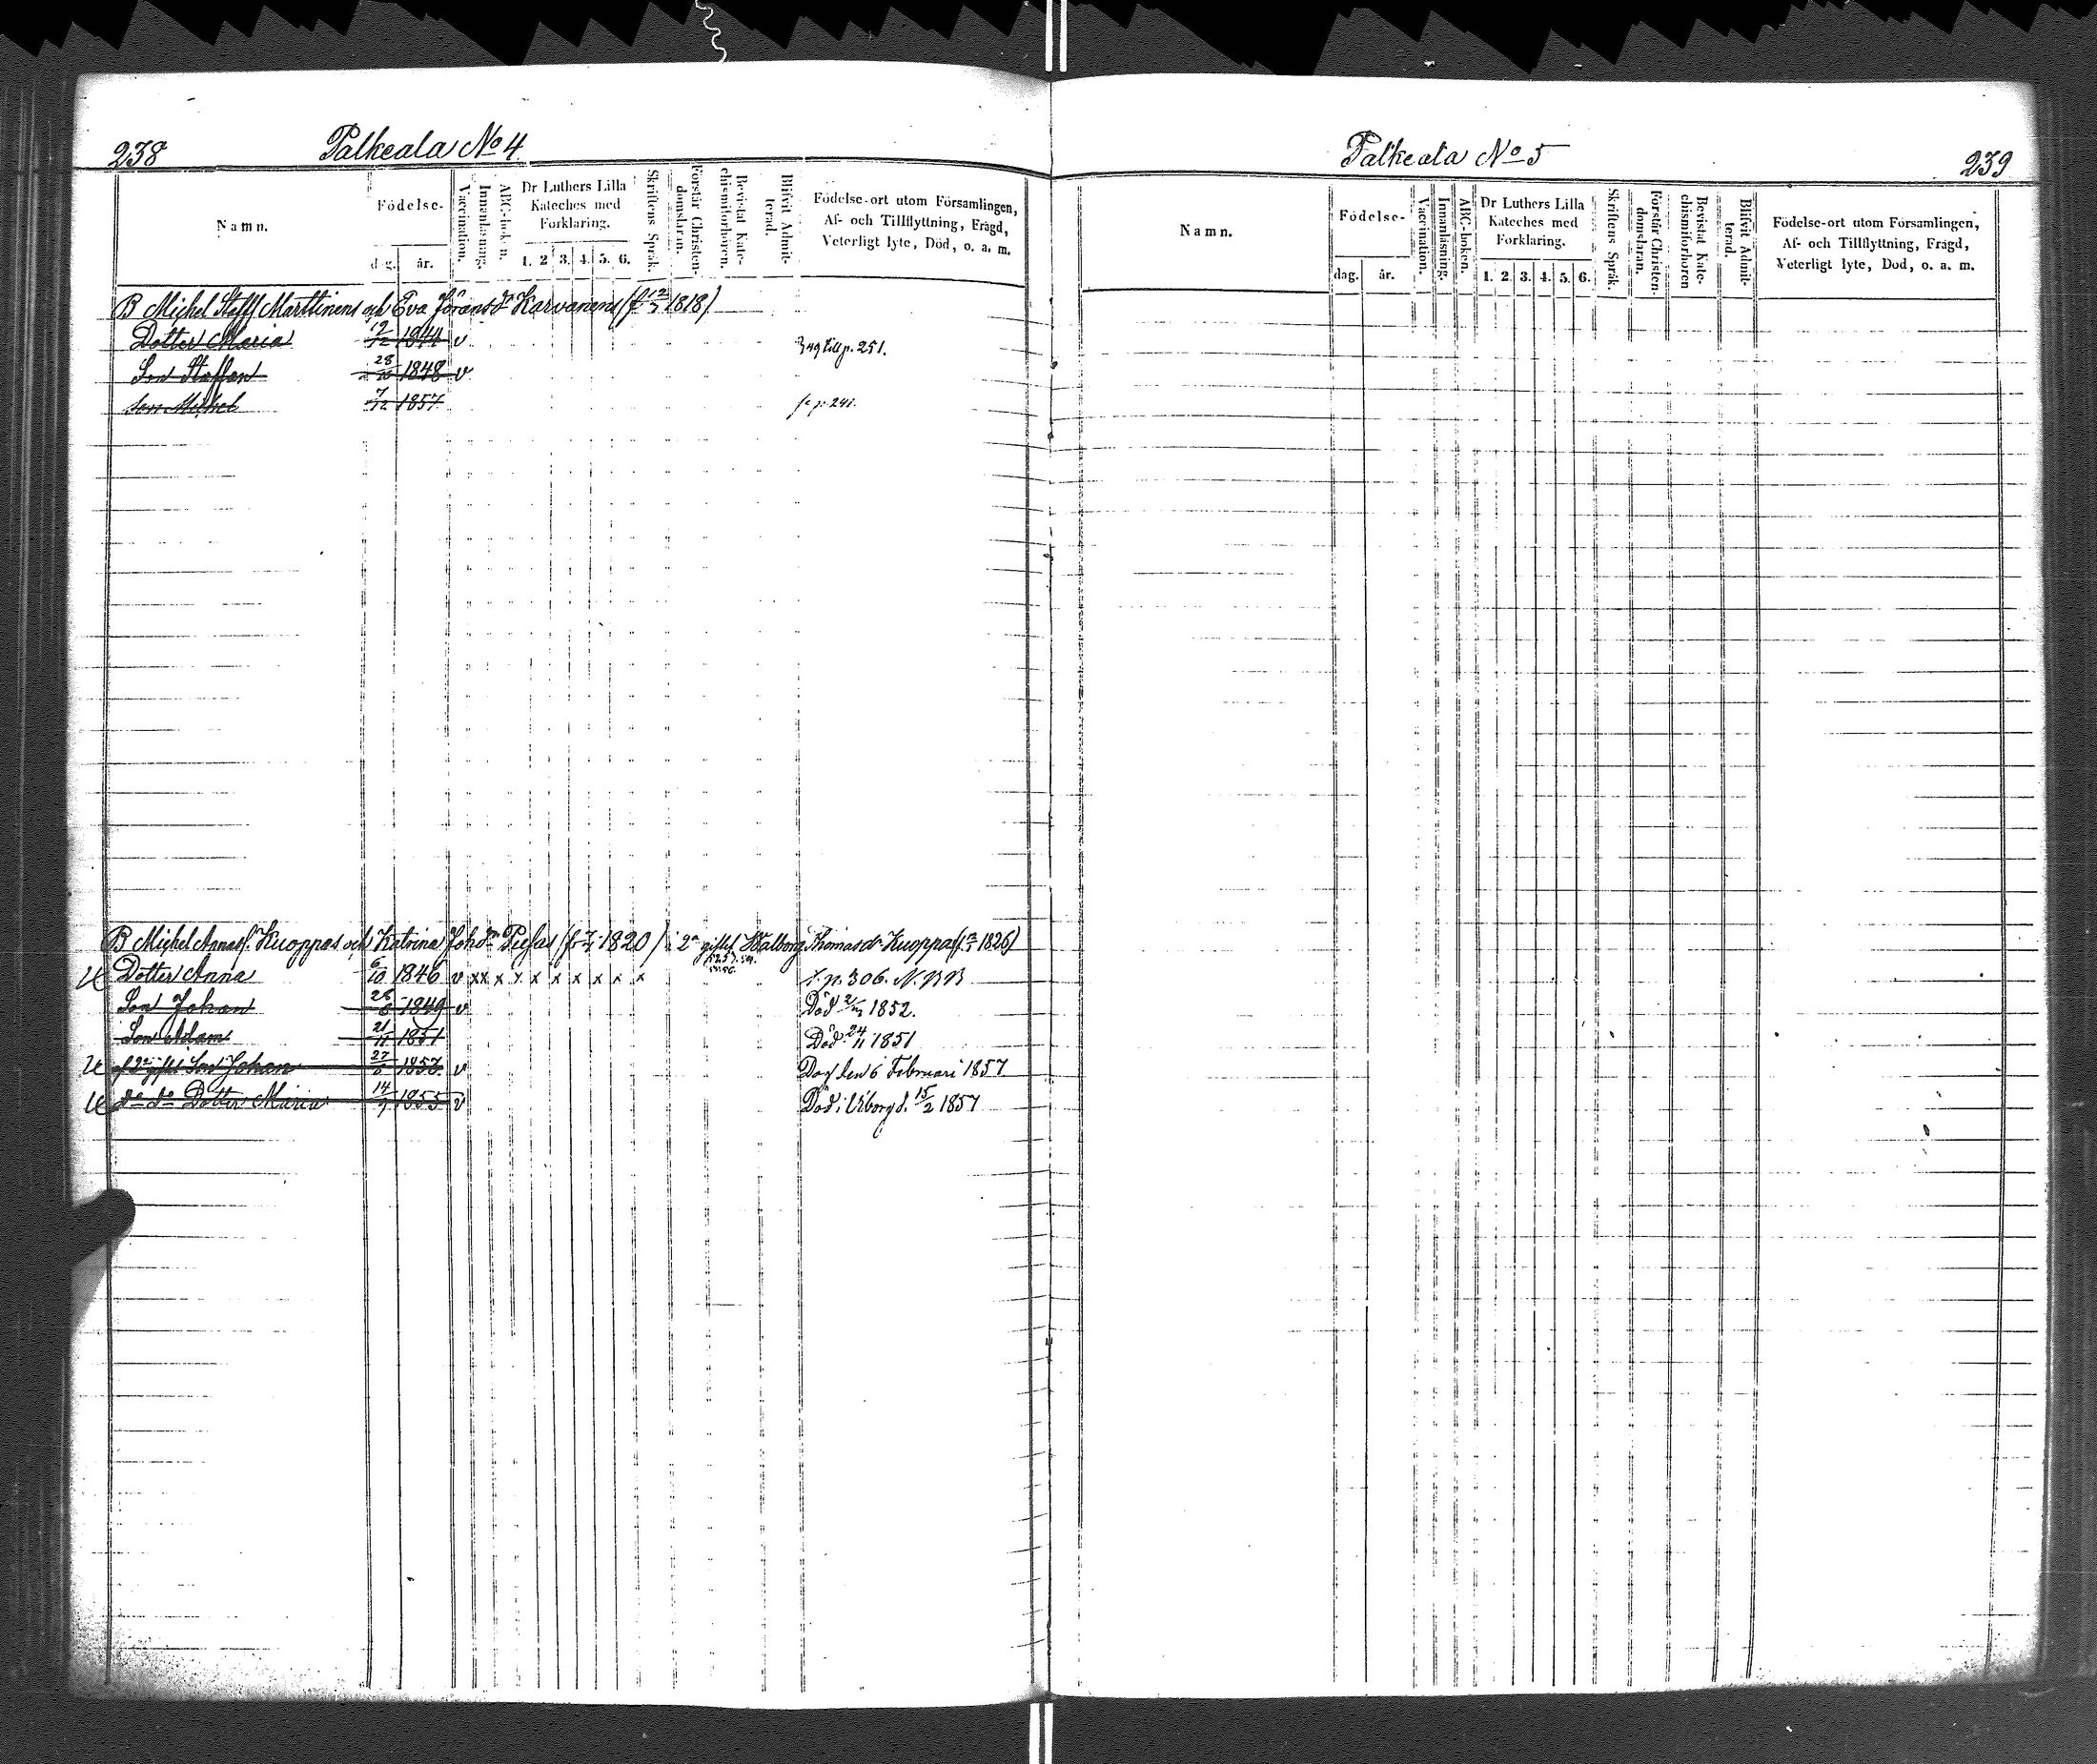 238
Palkeala No 4.
Namn.
Födelse-
dag. år.
Vaccination.
Innanläsning.
ABC-boken.
Dr Luthers Lilla
Kateches med
Förklaring.
1. 2 3. 4. 5. 6.
Skriftens Språk.
Förstår Christen-
domsläran.
Bevistat Kate-
chismiförhören.
Blifvit Admit-
terad.
Födelse-ort utom Församlingen,
Af- och Tillflyttning, Frägd,
Veterligt lyte, Död, o. a. m.
B Michel Staffs Marttinens och Eva Jöransdr Karvanens (f. 1818)
Dotter Maria 12/12 1844 v till p. 251.
Son Staffan 28/10 1848 v
Son Michel 7/12 1857 p. 241.
B Michel Kuoppas och Katrina Johdr (f. 1820) i 2a giftet Walborg Thomasdr Kuoppas (f. 1826)
Dotter Anna 6/10 1846 v x x x x x x x x x x p. 306. N. B B
Son Johan 28/8 1849 v Död 1852.
Son Adam 21/11 1851 Död 24/11 1851
af 2a giftet Son Johan 27 1853. v Död den 6 Februari 1857
do do Dotter Maria 14/7 1855 v Död i Viborg d. 15/2 1857
Palkeala No 5
239
Namn.
Födelse-
dag. år.
Vaccination.
Innanläsning.
ABC-boken.
Dr Luthers Lilla
Kateches med
Förklaring.
1. 2. 3. 4. 5. 6.
Skriftens Språk.
Förstår Christen-
domsläran.
Bevistat Kate-
chismiförhören
Blifvit Admit-
terad.
Födelse-ort utom Församlingen,
Af- och Tillflyttning, Frägd,
Veterligt lyte, Död, o. a. m.